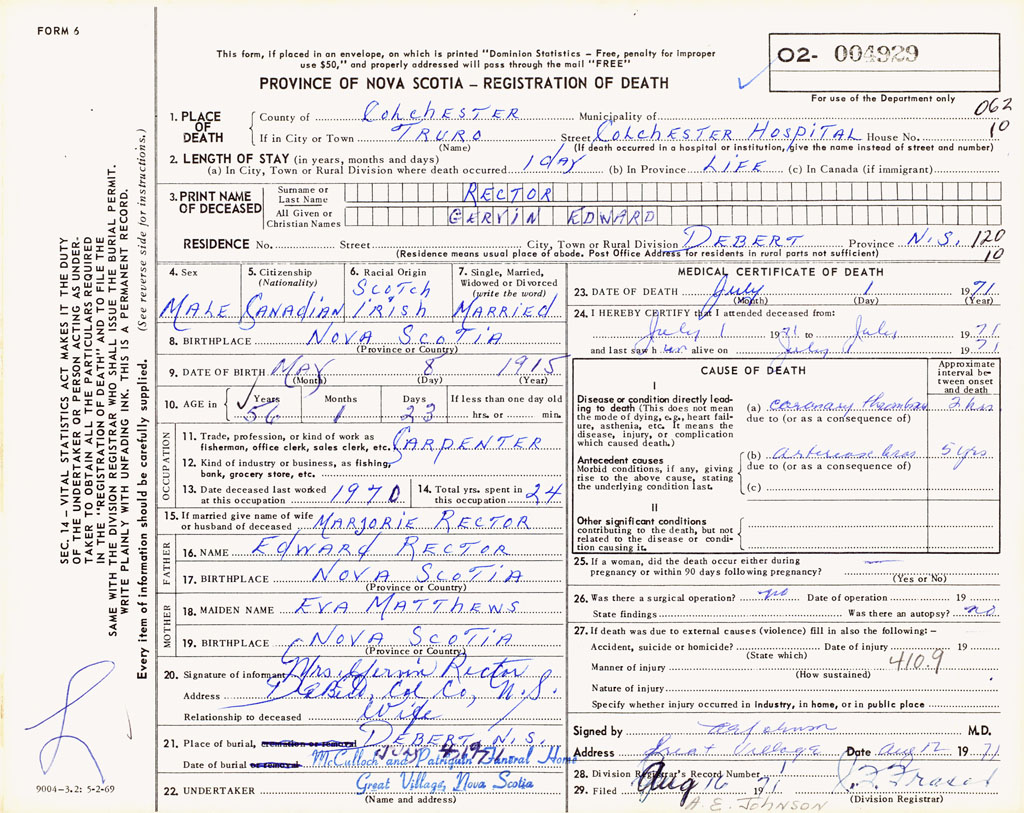 FORM 6
This form, if placed in an envelope, on which is printed "Dominion Statistics – Free, penalty for improper
use $50," and properly addressed will pass through the mail "FREE"
PROVINCE OF NOVA SCOTIA – REGISTRATION OF DEATH
O2- 004929
For use of the Department only
062
10
1. PLACE OF DEATH
County of COLCHESTER Municipality of
If in City or Town TRURO Street COLCHESTER HOSPITAL House No.
(Name) (If death occurred in a hospital or institution, give the name instead of street and number)
2. LENGTH OF STAY (in years, months and days)
(a) In City, Town or Rural Division where death occurred 1 DAY (b) In Province LIFE (c) In Canada (if immigrant)
3. PRINT NAME OF DECEASED
Surname or Last Name RECTOR
All Given or Christian Names GERVIN EDWARD
RESIDENCE No. Street City, Town or Rural Division DEBERT Province N.S. 120
(Residence means usual place of abode. Post Office Address for residents in rural parts not sufficient) 10
4. Sex MALE
5. Citizenship (Nationality) CANADIAN
6. Racial Origin SCOTCH IRISH
7. Single, Married, Widowed or Divorced (write the word) MARRIED
8. BIRTHPLACE NOVA SCOTIA
(Province or Country)
9. DATE OF BIRTH MAY 8 1915
(Month) (Day) (Year)
10. AGE in Years Months Days If less than one day old
56 1 23 hrs. or min.
OCCUPATION
11. Trade, profession, or kind of work as
fisherman, office clerk, sales clerk, etc. CARPENTER
12. Kind of industry or business, as fishing,
bank, grocery store, etc.
13. Date deceased last worked
at this occupation 1970
14. Total yrs. spent in
this occupation 24
15. If married give name of wife
or husband of deceased MARJORIE RECTOR
FATHER
16. NAME EDWARD RECTOR
17. BIRTHPLACE NOVA SCOTIA
(Province or Country)
MOTHER
18. MAIDEN NAME EVA MATTHEWS
19. BIRTHPLACE NOVA SCOTIA
(Province or Country)
20. Signature of informant Mrs. Gervin Rector
Address DeBert, Col Co, N.S.
Relationship to deceased Wife
21. Place of burial, cremation or removal DEBERT N.S.
Date of burial or removal JULY 4 1971
McCulloch and Patriquin Funeral Home
22. UNDERTAKER Great Village, Nova Scotia
(Name and address)
MEDICAL CERTIFICATE OF DEATH
23. DATE OF DEATH July 1 1971
(Month) (Day) (Year)
24. I HEREBY CERTIFY that I attended deceased from:
July 1 1971 to July 1971
and last saw him alive on July 1 1971
CAUSE OF DEATH
Approximate interval between onset and death
I
Disease or condition directly leading to death (This does not mean the mode of dying, e.g., heart failure, asthenia, etc. It means the disease, injury, or complication which caused death.)
(a) coronary 2 hrs
due to (or as a consequence of)
Antecedent causes
Morbid conditions, if any, giving rise to the above cause, stating the underlying condition last.
(b) 5 yrs
due to (or as a consequence of)
(c)
II
Other significant conditions
contributing to the death, but not related to the disease or condition causing it.
25. If a woman, did the death occur either during
pregnancy or within 90 days following pregnancy? —
(Yes or No)
26. Was there a surgical operation? no Date of operation 19
State findings Was there an autopsy? no
27. If death was due to external causes (violence) fill in also the following: –
Accident, suicide or homicide? Date of injury 19
(State which)
410.9
Manner of injury
(How sustained)
Nature of injury
Specify whether injury occurred in industry, in home, or in public place
Signed by A E Johnson M.D.
Address Great Village Date Aug 12 1971
28. Division Registrar's Record Number 1
29. Filed Aug 16 1971 Fraser
A. E. JOHNSON (Division Registrar)
SEC. 14 – VITAL STATISTICS ACT MAKES IT THE DUTY
OF THE UNDERTAKER OR PERSON ACTING AS UNDER-
TAKER TO OBTAIN ALL THE PARTICULARS REQUIRED
IN THE "REGISTRATION OF DEATH" AND TO FILE THE
SAME WITH THE DIVISION REGISTRAR WHO SHALL ISSUE THE BURIAL PERMIT.
WRITE PLAINLY WITH UNFADING INK. THIS IS A PERMANENT RECORD.
Every item of information should be carefully supplied. (See reverse side for instructions.)
9004-3.2: 5-2-69